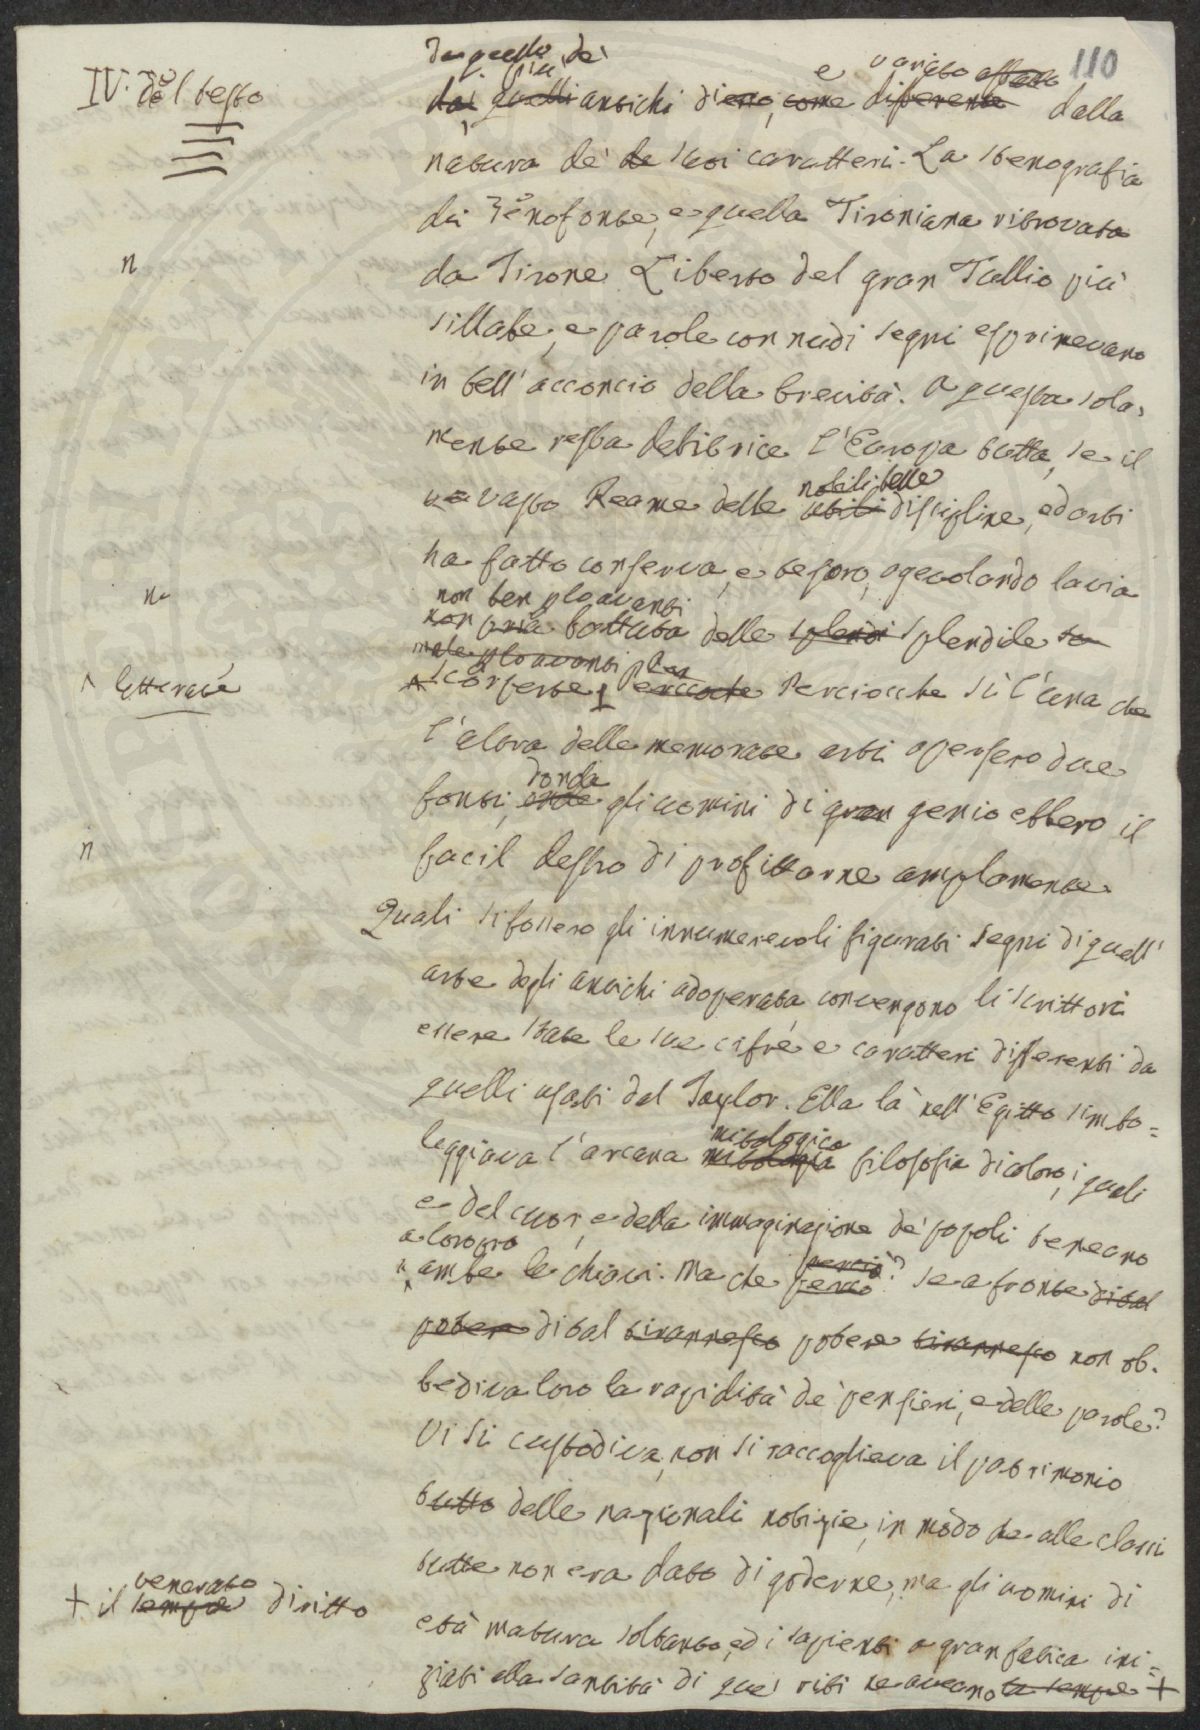 110
IV. del testo
da quello de'
più e variato affatto
dai quelli antichi dieno, come differente dalla
natura de' de suoi caratteri. La stenografia
di Zenofonte, e quella Tironiana ritrovata
da Tirone Liberto del gran Tullio più
sillabe, e parole con nudi segni esprimevano
in bell'acconcio della brevità. A questa sola-
mente resta debitrice l'Europa tutta, se il
vasto Reame delle nobili belle utili discipline, ed arti
ha fatto conserva, e tesoro, agevolando la via
non ben per lo avanti
non pria battuta delle splendi splendide
male per lo avanti
^ letterarie
^ scoperte, Perciocchè sì l'una che
l'altra delle memorate arti apersero due
fonti, onde donde gli uomini di gran genio ebbero il
facil destro di profittarne amplamente.
Quali si fossero gli innumerevoli figurati segni di quell'
arte dagli antichi adoperata convengono li scrittori
essere state le sue cifre e caratteri differenti da
quelli usati dal Taylor. Ella là nell'Egitto simbo=
leggiava l'arcana mitologia mitologica filosofia di coloro, i quali
e del cuor, e della immaginazione de' popoli teneano
a loro pro
ambe le chiavi. Ma che perciò? se a fronte di tal
potere di tal tirannesco potere tirannesco non ob-
bediva loro la rapidità de' pensieri, e delle parole?
Vi si custodiva, non si raccoglieva il patrimonio
tutto delle nazionali notizie, in modo che alle classi
tutte non era dato di goderne, ma gli uomini di
età matura soltanto, ed i sapienti a gran fatica ini=
ziati alla santità di quei riti ne aveano la sempre +
+ il sempre venerato diritto